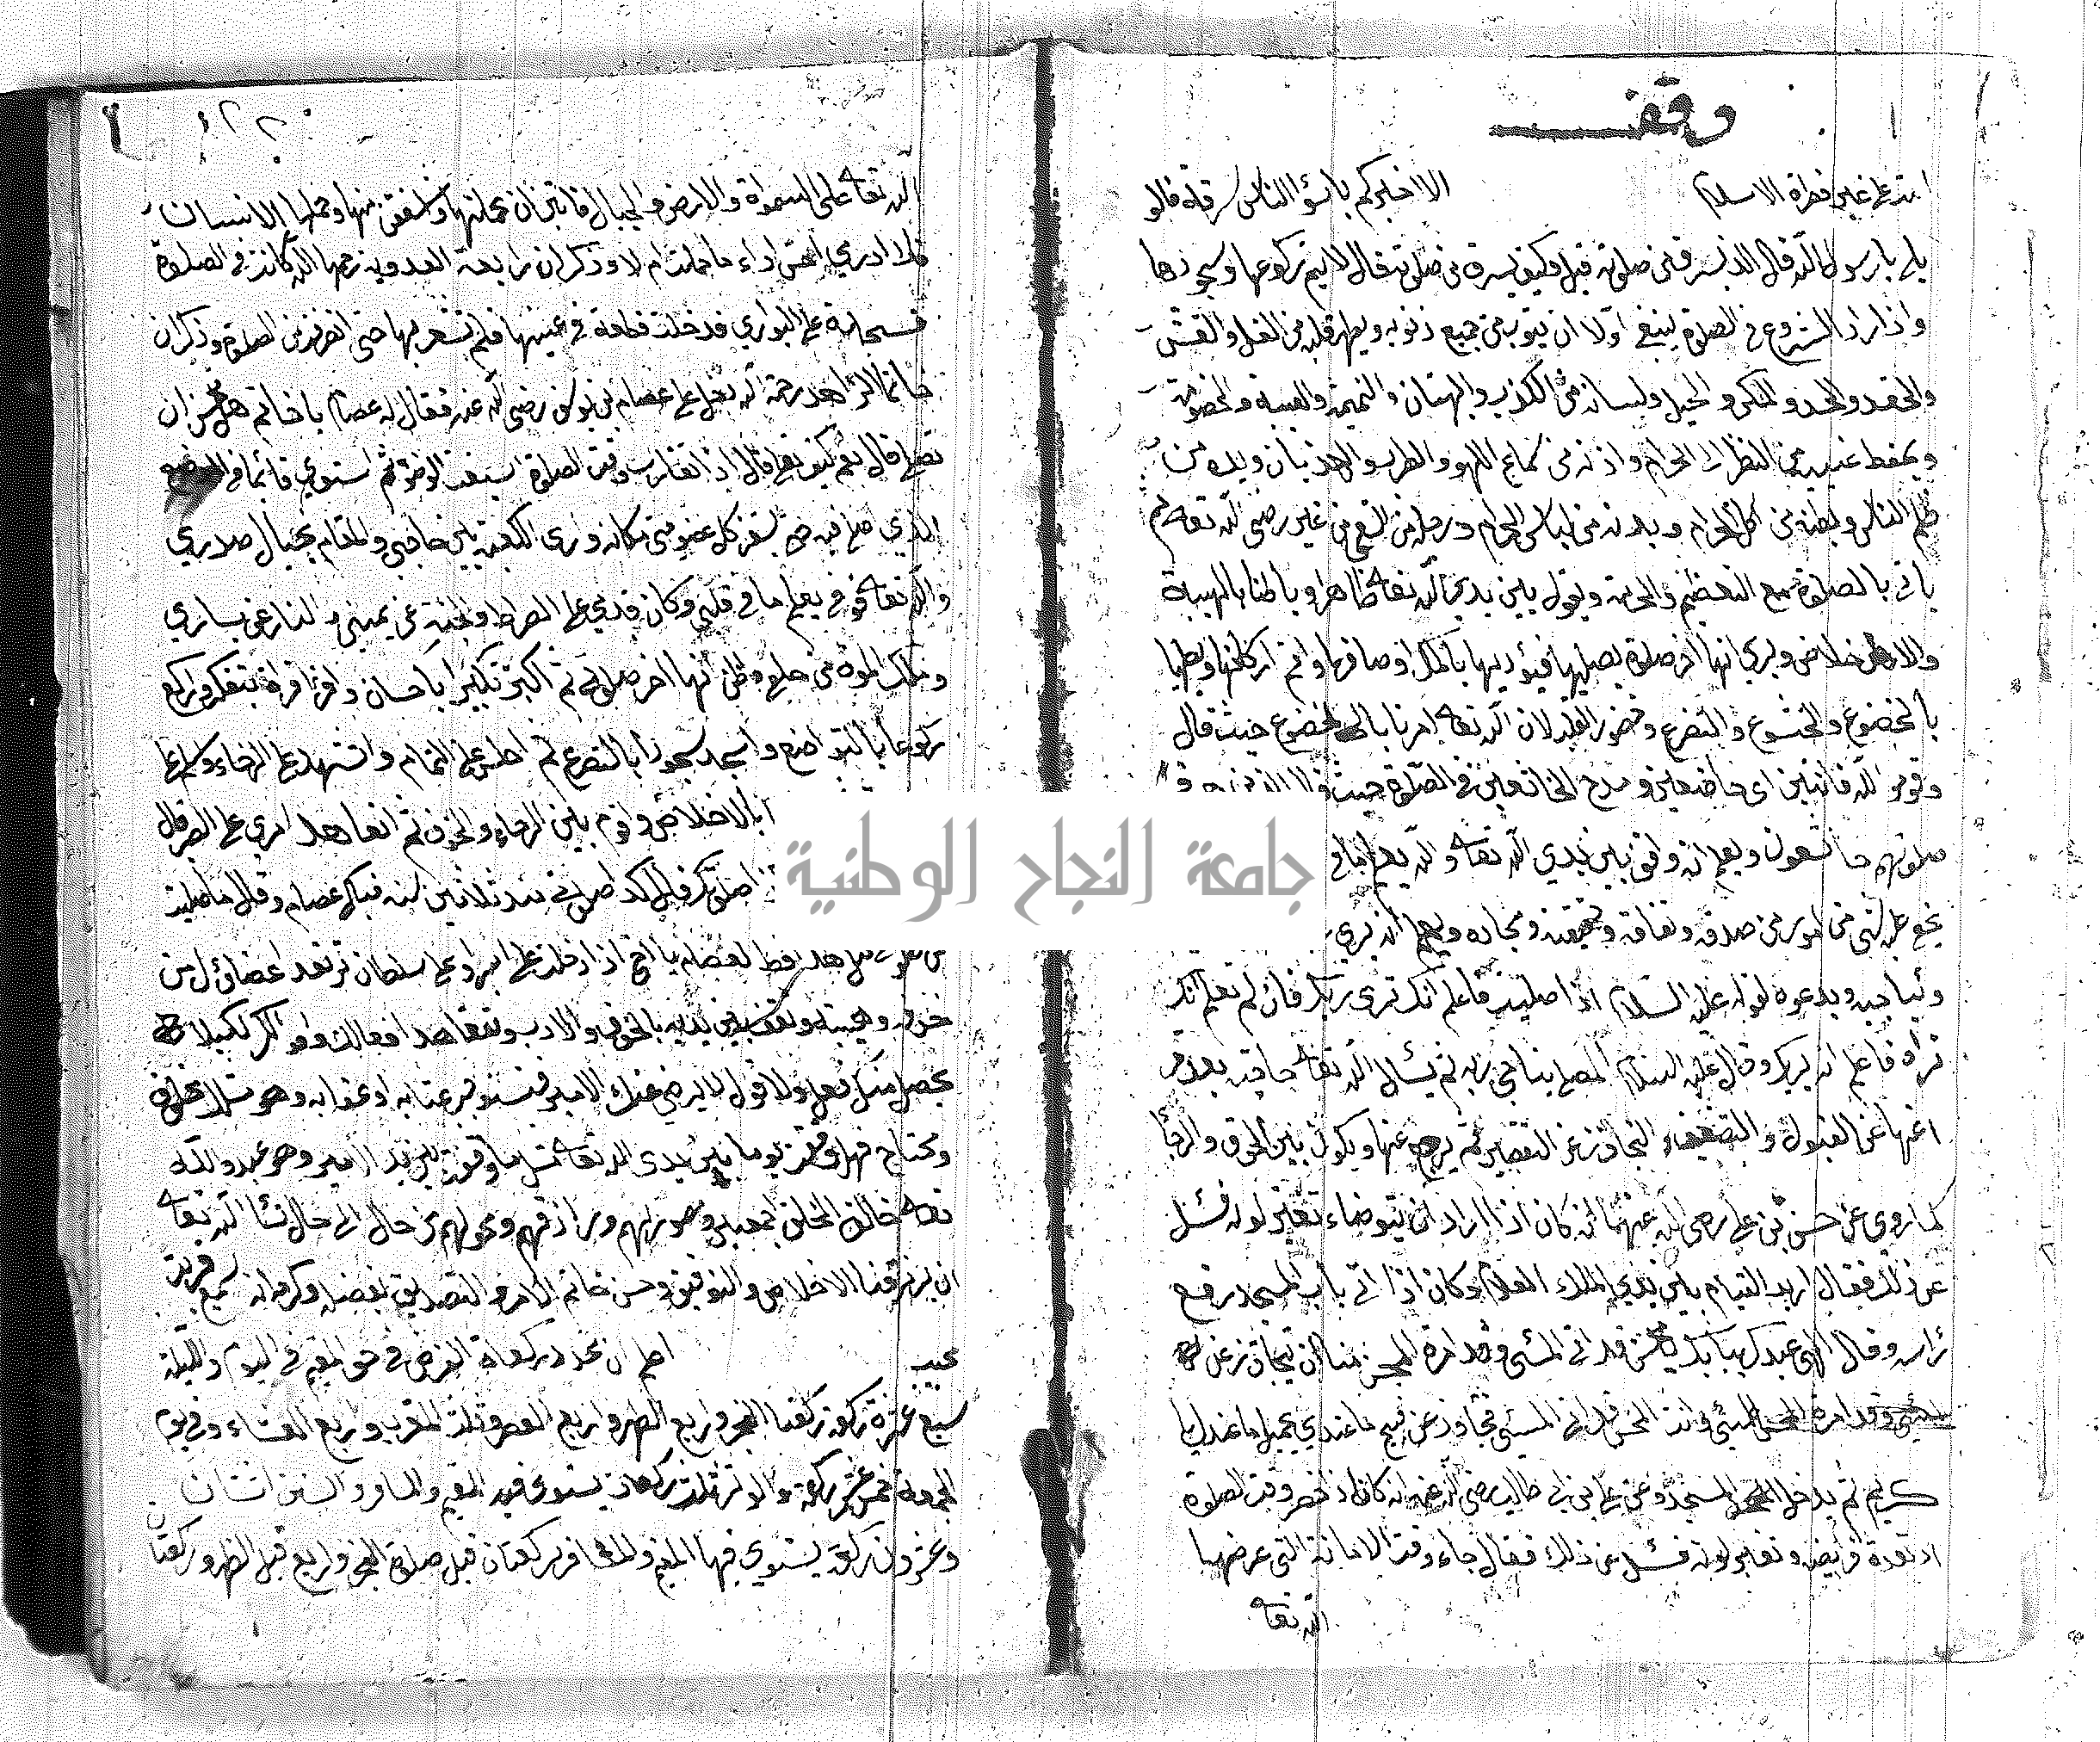 وقف
ابتدع غير فطرة الاسلام الا اخبركم باسؤ الناس سرقة قالو
بلى يا رسول الله قال الذي يسرق من صلوته قيل وكيف يسرق من صلوته قال لا يتم ركوعها وسجودها
واذا اراد الشروع في الصلوة ينبغي اولا ان يتوب من جميع ذنوبه ويطهر قلبه من الغل والغش
والحقد والحسد والمكر والحيل ولسانه من الكذب والبهتان والنميمة والغيبة والخصومة
ويحفظ عينيه من النظر الى الحرام واذنه من سماع اللهو والطرب والهذيان ويده من
ظلم الناس وبطنه من اكل الحرام وبدنه من لباس الحرام ورجله من السعي في غير رضى الله تعه ثم
ياتي بالصلوة مع التعظيم والحرمة ويقول بين يدي الله تعه ظاهرا وباطنا بالهيبة
والاخلاص ويرى انها اخر صلوة يصليها فيؤديها باكمل اوصافها واتم اركانها ويصليها
بالخضوع والخشوع والتضرع وحضور القلب لان الله تعه امرنا بالخضوع حيث قال
وقوموا لله قانتين اي خاضعين ومدح الخاشعين في الصلوة حيث
صلوتهم خاشعون ويعلم انه واقف بين يدي الله تعه والله يعلم ما في
ويناجيه ويدعوه لقوله عليه السلام اذا صليت فاعلم انك ترى ربك فان لم تعلم انك
تراه فاعلم انه يريك وقال عليه السلام المصلي يناجي ربه ثم يسال الله تعه حاجته بعد
كما روي عن حسن بن علي رضي الله عنهما انه كان اذا اراد ان يتوضاء تغير لونه فسئل
عن ذلك فقال اريد القيام بين يدي الملك العلام وكان اذا اتى باب المسجد رفع
رأسه وقال الهي عبدك ببابك يا محسن قد اتى المسئ وقد امرت المحسن منا ان يتجاوز عن
المسئ وانت المحسن قد اتى المسئ فتجاوز عن قبيح ما عندي بجميل ما عندك يا
كريم ثم يدخل المسجد وعن علي بن ابي طالب رضي الله عنه انه كان اذا حضر وقت الصلوة
ارتعدة فرايضه وتغير لونه فسئل عن ذلك فقال جاء وقت الامانة التي عرضها
الله تعه
الله تعه على السموات والارض والجبال فابين ان يحملنها واشفقن منها وحملها الانسان
فلا ادري احسن اداء ما حملت ام لا وذكر ان رابعة العدوية رحمها الله كانت في الصلوة
فسجدت على البواري فدخلت قطعة في عينيها فلم تشعر بها حتى انصرفت من الصلوة وذكر ان
حاتم الزاهد رحمه الله دخل على عصام بن يوسف رضي الله عنه فقال له عصام يا حاتم هل تحسن ان
تصلي قال نعم كيف تصلي قال اذا تقارب وقت الصلوة اسبغت الوضوء ثم استوي قائما في الموضع
الذي اصلي فيه حتى يستقر كل عضو مني مكانه وارى الكعبة بين حاجبي والمقام بحيال صدري
والله تعه فوقي يعلم ما في قلبي وكان قدمي على الصراط والجنة عن يميني والنار عن يساري
وملك الموت من خلفي واظن انها اخر صلوتي ثم اكبر تكبيرا باحسان واقرأ قراءة بتفكر واركع
ركوعا بالتواضع واسجد سجودا بالتضرع ثم اجلس على التمام واتشهد على الرجاء واسلم على
بالاخلاص واقوم بين الرجاء والخوف ثم اتعاهد امري على الصبر قال
صلوتك قال كذا صلوتي منذ ثلاثين سنة فبكى عصام وقال ما صليت
لعصام يا اخي اذا دخلت على امير او على سلطان ترتعد اعضائك من
خوفه وهيبته وتقف بين يديه بالخوف والادب وتتعاهد افعالك واقوالك لكيلا
يحصل منك فعل ولا قول لا يرضى عنك الامير فتستوجب عتابه او عذابه وهو مثلك مخلوق
تعه خالق الخلق اجمعين ومصورهم ورازقهم ومحولهم من حال الى حال نسأل الله تعه
ان يرزقنا الاخلاص والتوفيق وحسن خاتم الامر والتصديق بفضله وكرمه انه سميع قريب
مجيب اعلم ان عدد ركعات الفرض في حق المقيم في اليوم والليلة
سبع عشرة ركعة ركعتا الفجر واربع الظهر واربع العصر وثلث المغرب واربع العشاء وفي يوم
الجمعة خمس عشر ركعة والوتر ثلث ركعات يستوي فيه المقيم والمسافر والسنن اثنتان
وعشرون ركعة يستوي فيها المقيم والمسافر ركعتان قبل صلاة الفجر واربع قبل الظهر وركعتان
جامعة النجاح الوطنية